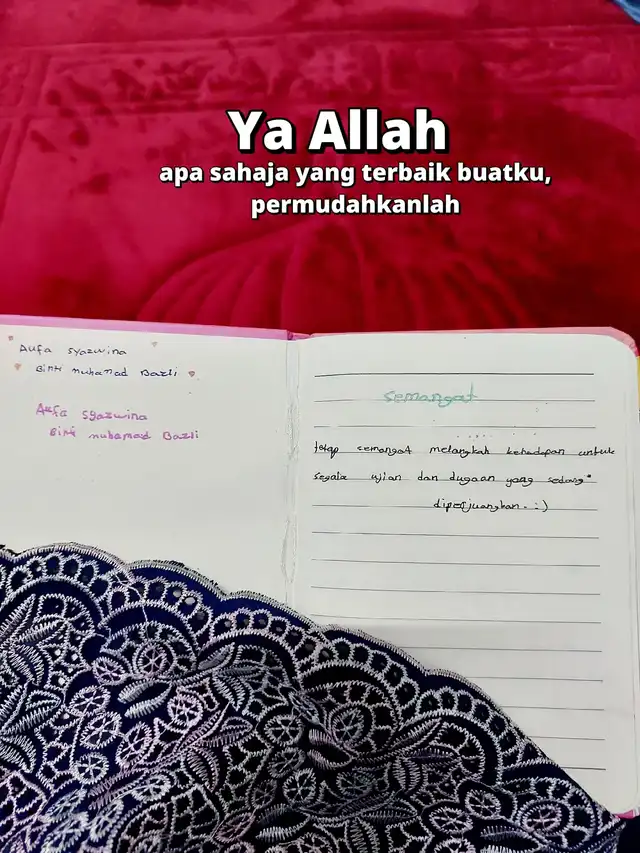 Ya Allah
apa sahaja yang terbaik buatku,
permudahkanlah
Aufa syazwina
Binti muhamad Bazli
Aufa Syazwina
Binti muhamad Bazli
semangat
tetap semangat melangkah kehadapan untuk
segala ujian dan dugaan yang sedang"
diperjuangkan. :)